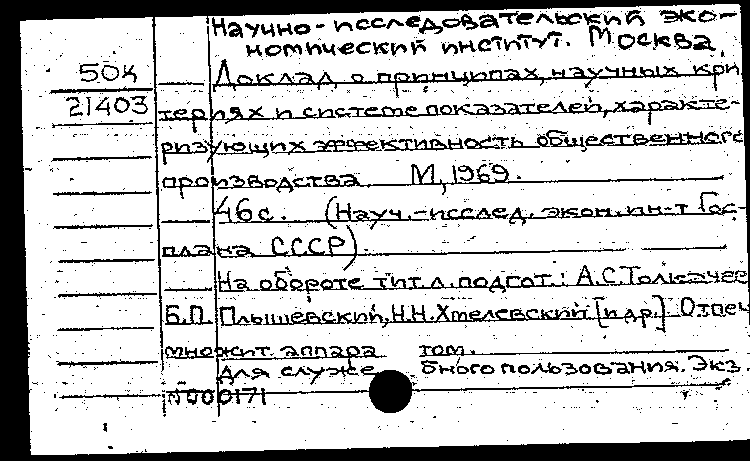 Научно-исследовательский эко-
номический институт. Москва.
50к Доклад о принципах, научных кри
21403 териях и системе показателей, характе-
ризующих эффективность общественного
производства. М, 1969.
46 с. (Науч.-исслед. экон. ин-т Гос-
плана СССР).
На обороте тит. л. подгот.: А.С.Толкачев
Б.П. Плышевский, Н.Н.Хмелевский [и др.] Отпеч
множит. аппара том.
Для служе бного пользования. Экз.
№000171